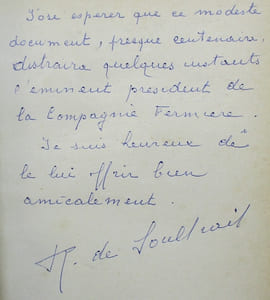 J'ose espérer que ce modeste
document, presque centenaire,
distraira quelques instants
l'éminent président de
la Compagnie Fermière.
Je suis heureux de
le lui offrir bien
amicalement.
R. de Soultrait